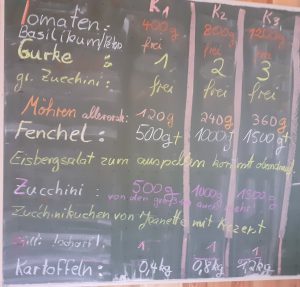 K1 K2 K3
Tomaten: 400g 800g 1200g
Basilikum/Peters. frei frei frei
Gurke 1 2 3
gr. Zucchini: frei frei frei
Möhren allererste: 120g 240g 360g
Fenchel: 500g+ 1000g+ 1500g+
Eisbergsalat zum auspellen kommt
Zucchini: 500g 1000g 1500g
von den größeren auch mehr
Zucchinikuchen von Jeanette mit Rezept
1 1 1
Kartoffeln: 0,4kg 0,8kg 1,2kg